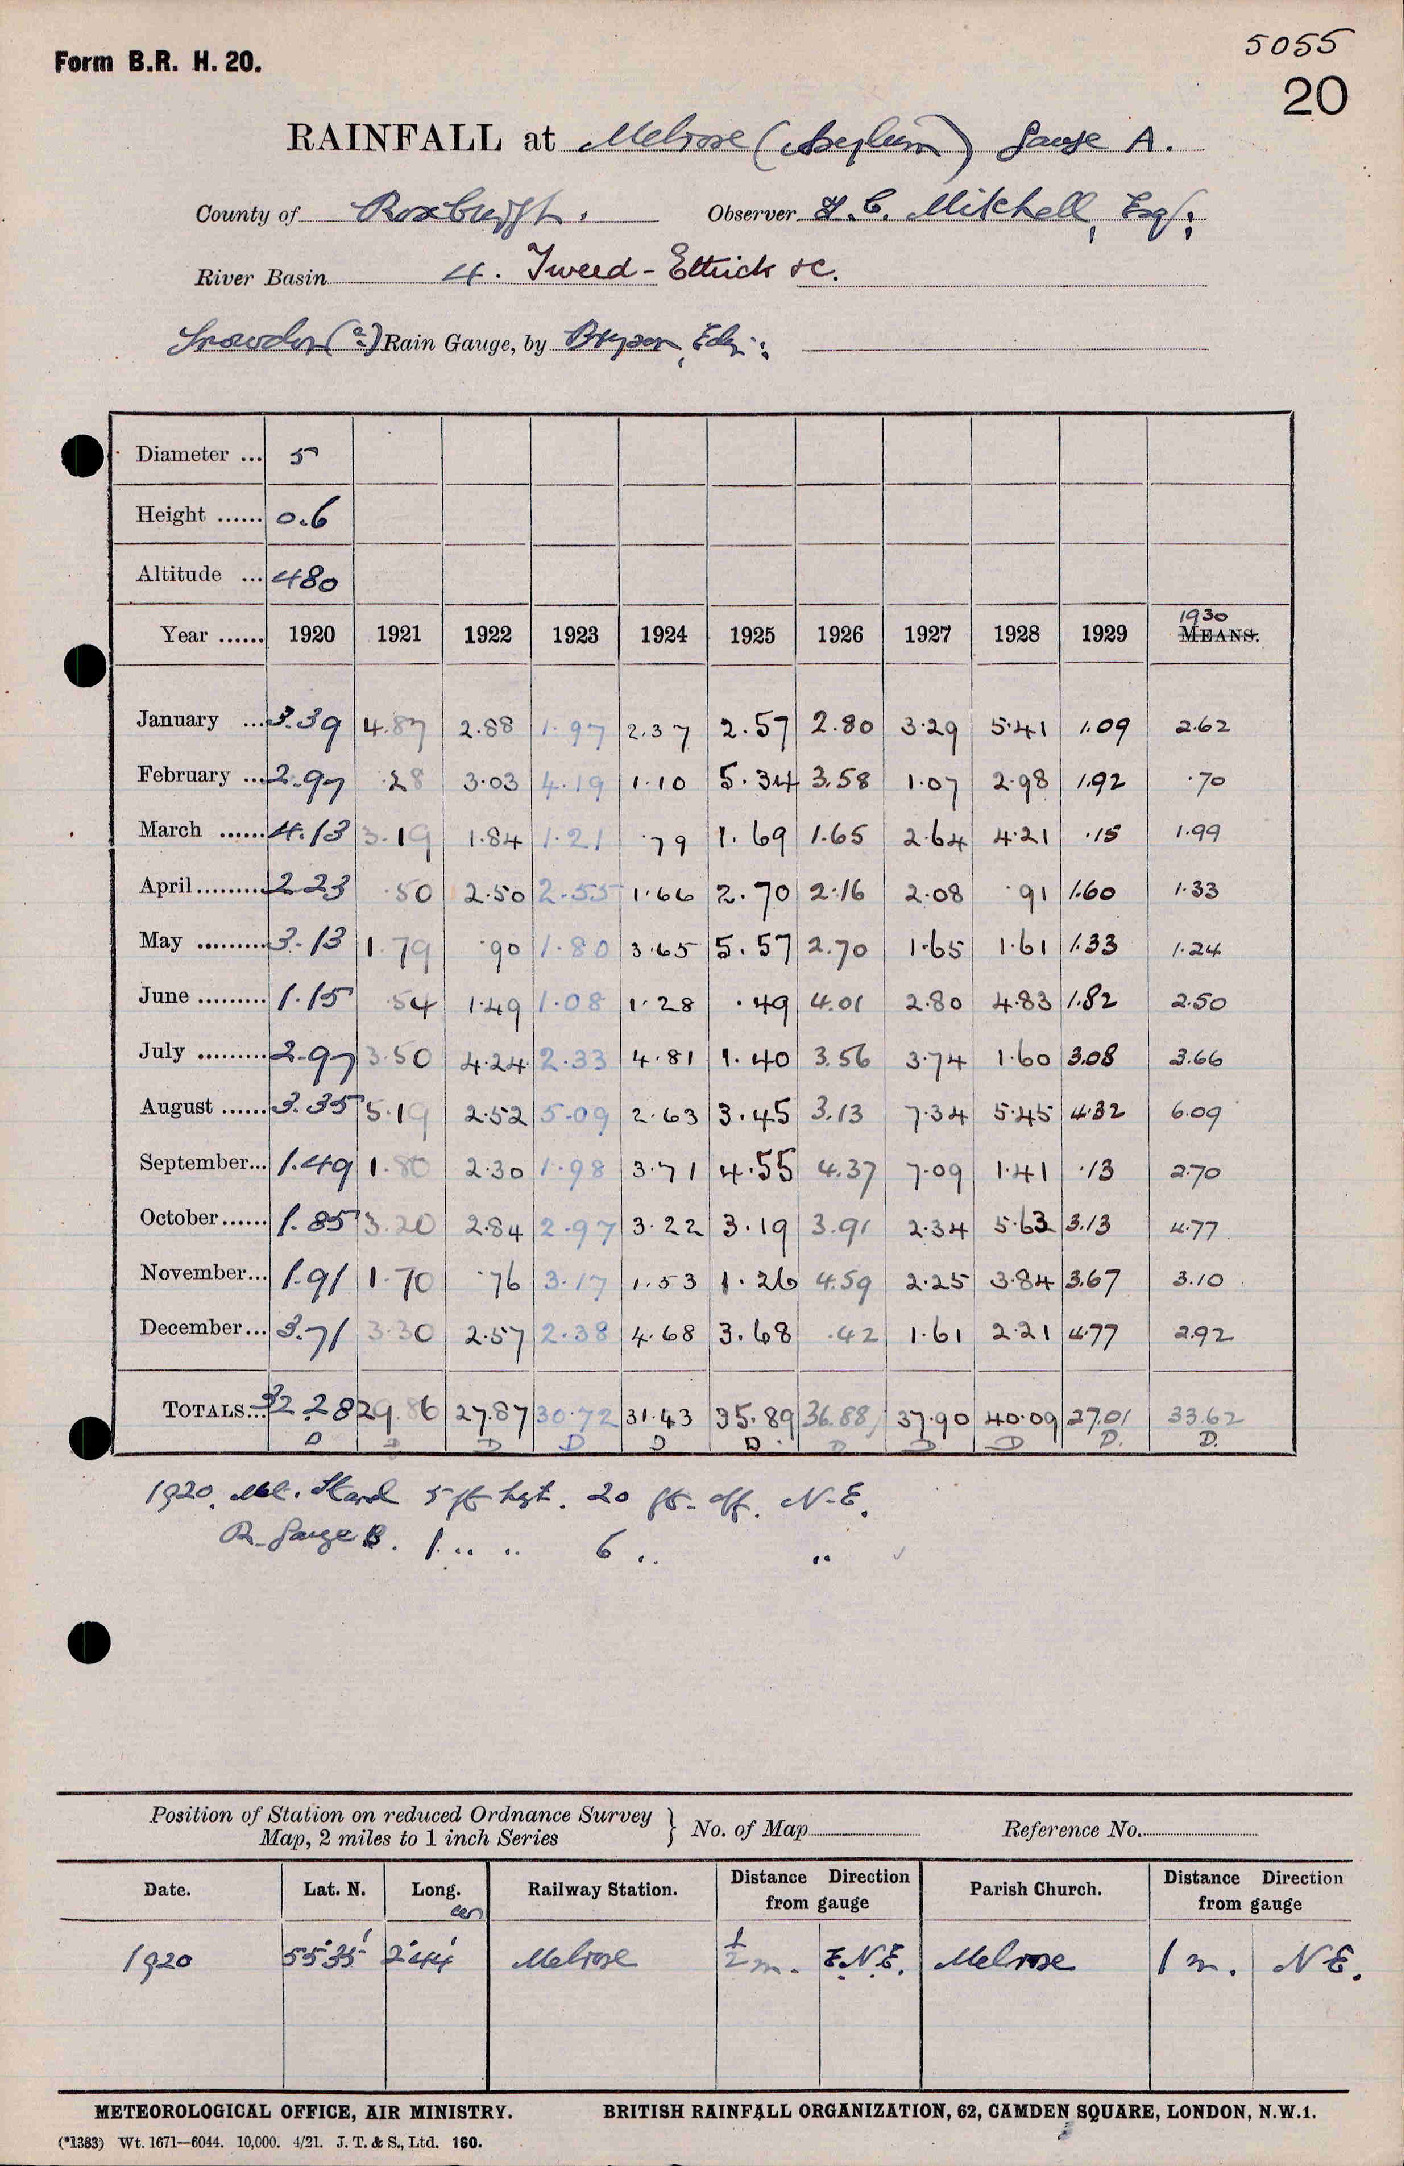 Form B.R. H. 20.
5055
20
RAINFALL at Melrose (Asylum) Gauge A.
County of Roxburgh. Observer H. C. Mitchell, Esq.
River Basin 4. Tweed - Ettrick &c.
Snowdon (a) Rain Gauge, by Bryson, Edin:
Diameter ... 5
Height ...... 0.6
Altitude ... 480
1930
Year ...... 1920 1921 1922 1923 1924 1925 1926 1927 1928 1929 MEANS.
January ... 3.39 4.87 2.88 1.97 2.37 2.57 2.80 3.29 5.41 1.09 2.62
February ... 2.97 .28 3.03 4.19 1.10 5.34 3.58 1.07 2.98 1.92 .70
March ...... 4.13 3.19 1.84 1.21 .79 1.69 1.65 2.64 4.21 .15 1.99
April......... 2.23 .50 2.50 2.55 1.66 2.70 2.16 2.08 .91 1.60 1.33
May ......... 3.13 1.79 .90 1.80 3.65 5.57 2.70 1.65 1.61 1.33 1.24
June ......... 1.15 .54 1.49 1.08 1.28 .49 4.01 2.80 4.83 1.82 2.50
July ......... 2.97 3.50 4.24 2.33 4.81 1.40 3.56 3.74 1.60 3.08 3.66
August ...... 3.35 5.19 2.52 5.09 2.63 3.45 3.13 7.34 5.45 4.32 6.09
September... 1.49 1.80 2.30 1.98 3.71 4.55 4.37 7.09 1.41 .13 2.70
October...... 1.85 3.20 2.84 2.97 3.22 3.19 3.91 2.34 5.63 3.13 4.77
November... 1.91 1.70 .76 3.17 1.53 1.26 4.59 2.25 3.84 3.67 3.10
December... 3.71 3.30 2.57 2.38 4.68 3.68 .42 1.61 2.21 4.77 2.92
TOTALS... 32.28 29.86 27.87 30.72 31.43 35.89 36.88 37.90 40.09 27.01 33.62
D D D D D D D D D D. D.
1920. Met. Stand 5 ft hgt. 20 ft. off. N.E.
R. Gauge B. 1 " " 6 " "
Position of Station on reduced Ordnance Survey
Map, 2 miles to 1 inch Series } No. of Map Reference No.
Date. Lat. N. Long. Railway Station. Distance Direction from gauge Parish Church. Distance Direction from gauge
1920 55°35' 2°44' Melrose ½ m. E.N.E. Melrose 1 m. N.E.
METEOROLOGICAL OFFICE, AIR MINISTRY. BRITISH RAINFALL ORGANIZATION, 62, CAMDEN SQUARE, LONDON, N.W.1.
(*1383) Wt. 1671—6044. 10,000. 4/21. J. T. & S., Ltd. 160.